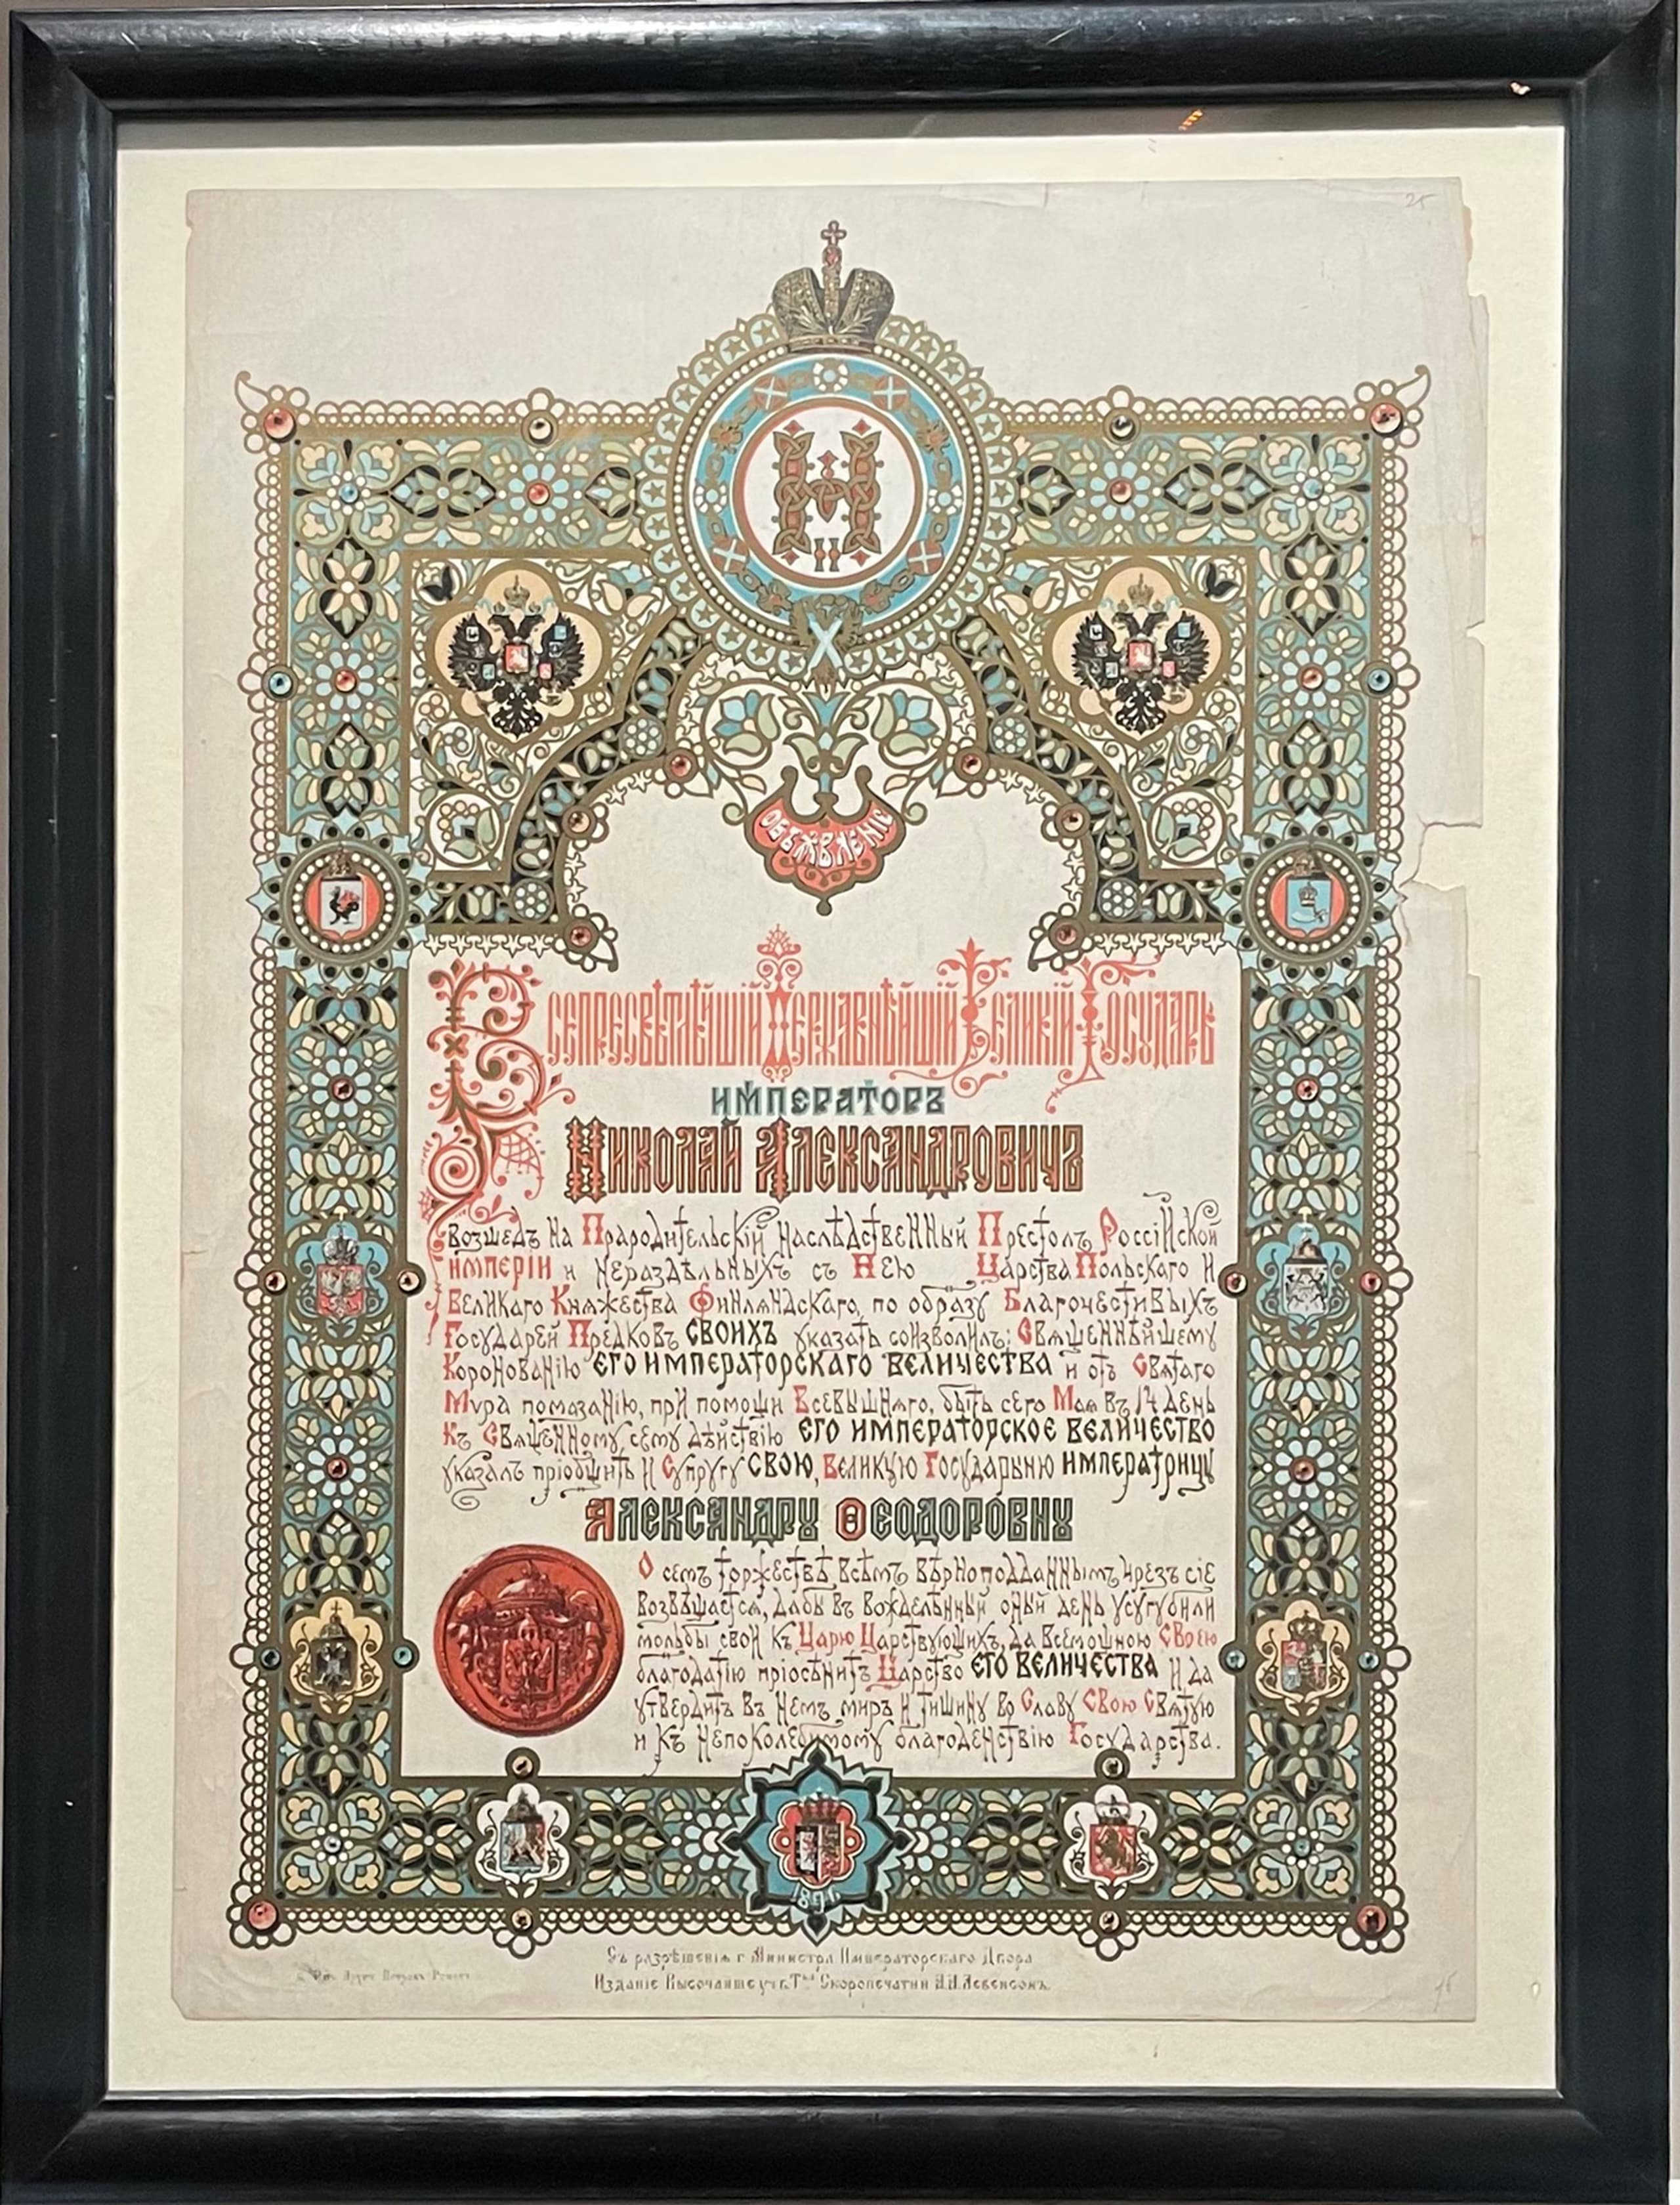 Н
II
ОБЪЯВЛЕНІЕ
ВСЕПРЕСВѢТЛѢЙШІЙ ДЕРЖАВНѢЙШІЙ ВЕЛИКІЙ ГОСУДАРЬ
ИМПЕРАТОРЪ
НИКОЛАЙ АЛЕКСАНДРОВИЧЪ
возшедъ на Прародительскій наслѣдственный Престолъ Россійской
имперіи и нераздѣльныхъ съ Нею Царства Польскаго и
Великаго Княжества Финляндскаго, по образу Благочестивыхъ
Государей Предковъ СВОИХЪ указать соизволилъ: Священнѣйшему
Коронованію ЕГО ИМПЕРАТОРСКАГО ВЕЛИЧЕСТВА и отъ Святаго
Мѵра помазанію, при помощи Всевышняго, быть сего Мая въ 14 день
Къ Священному сему дѣйствію ЕГО ИМПЕРАТОРСКОЕ ВЕЛИЧЕСТВО
указалъ пріобщить и Супругу СВОЮ, Великую Государыню ИМПЕРАТРИЦУ
АЛЕКСАНДРУ ѲЕОДОРОВНУ
О семъ торжествѣ всѣмъ вѣрноподданнымъ чрезъ сіе
возвѣщается, дабы въ вожделѣнный оный день усугубили
мольбы свои къ Царю Царствующихъ, да всемощною Своею
благодатію пріосѣнитъ Царство ЕГО ВЕЛИЧЕСТВА и да
утвердитъ въ немъ миръ и тишину во Славу Свою Святую
и къ непоколебимому благоденствію Государства.
1896
Съ разрѣшенія г Министра Императорскаго Двора
Изданіе Высочайше утв. Тва Скоропечатни А.А. Левенсонъ.
25